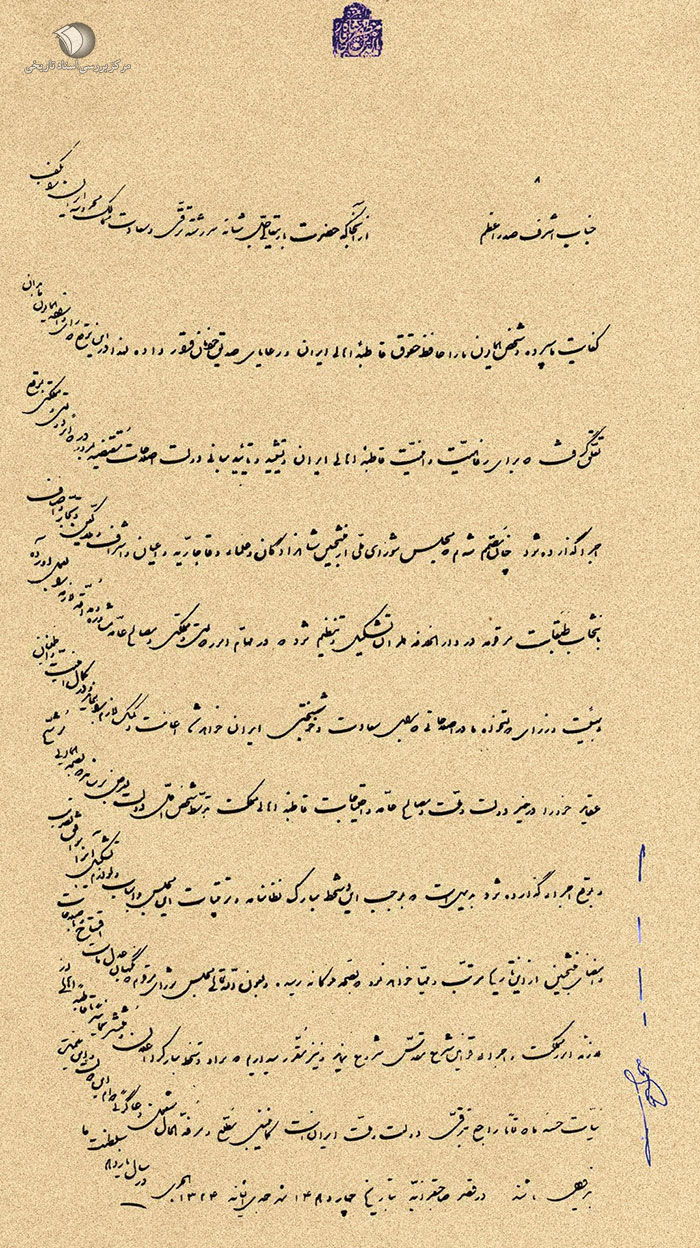 مرکز بررسی اسناد تاریخی
جناب اشرف صدراعظم از آنجا که حضرت باریتعالی جل شانه سررشته ترقی و سعادت ممالک محروسه ایران را بکف
کفایت ما سپرده و شخص همایون ما را حافظ حقوق قاطبهٔ اهالی ایران و رعایای صدیق خودمان قرار داده لهذا در این موقع که رای و ارادهٔ همایون ما بدان
تعلق گرفت که برای رفاهیت و امنیت قاطبهٔ اهالی ایران و تشیید و تأیید مبانی دولت اصلاحات مقتضیه بمرور در دوائر دولتی و مملکتی بموقع
اجرا گذارده شود چنان مصمم شدیم که مجلس شورای ملی از منتخبین شاهزادگان و علماء و قاجاریه و اعیان و اشراف و ملاکین و تجار و اصناف
بانتخاب طبقات مرقومه در دارالخلافه طهران تشکیل و تنظیم شود که در مهام امور دولتی و مملکتی و مصالح عامه مشاوره و مداقه لازمه را بعمل آورده
و بهیئت وزرای دولتخواه ما در اصلاحاتی که برای سعادت و خوشبختی ایران خواهد شد اعانت و کمک لازم را بنماید و در کمال امنیت و اطمینان
عقاید خود را در خیر دولت و ملت و مصالح عامه و احتیاجات قاطبهٔ اهالی مملکت بتوسط شخص اول دولت بعرض برساند که بصحهٔ همایونی موشح
و بموقع اجراء گذارده شود بدیهی است که بموجب این دستخط مبارک نظامنامه و ترتیبات این مجلس و اسباب و لوازم تشکیل آنرا موافق تصویب
و امضای منتخبین از این تاریخ مرتب و مهیا خواهد نمود که بصحه ملوکانه رسیده و بعون الله تعالی مجلس شورای مرقوم که نگهبان عدل ماست افتتاح و باصلاحات
لازمه امور مملکت و اجراء قوانین شرع مقدس شروع نماید و نیز مقرر میداریم که سواد دستخط مبارک را اعلان و منتشر نمائید تا قاطبهٔ اهالی از
نیات حسنه ما که تماماً راجع بترقی دولت و ملت ایران است کماینبغی مطلع و مرفه‌الحال مشغول دعاگوئی دوام این دولت و این نعمت
بی‌زوال باشند در قصر صاحبقرانیه بتاریخ چهاردهم شهر جمادی‌الثانیه ۱۳۲۴ هجری در سال یازدهم سلطنت ما